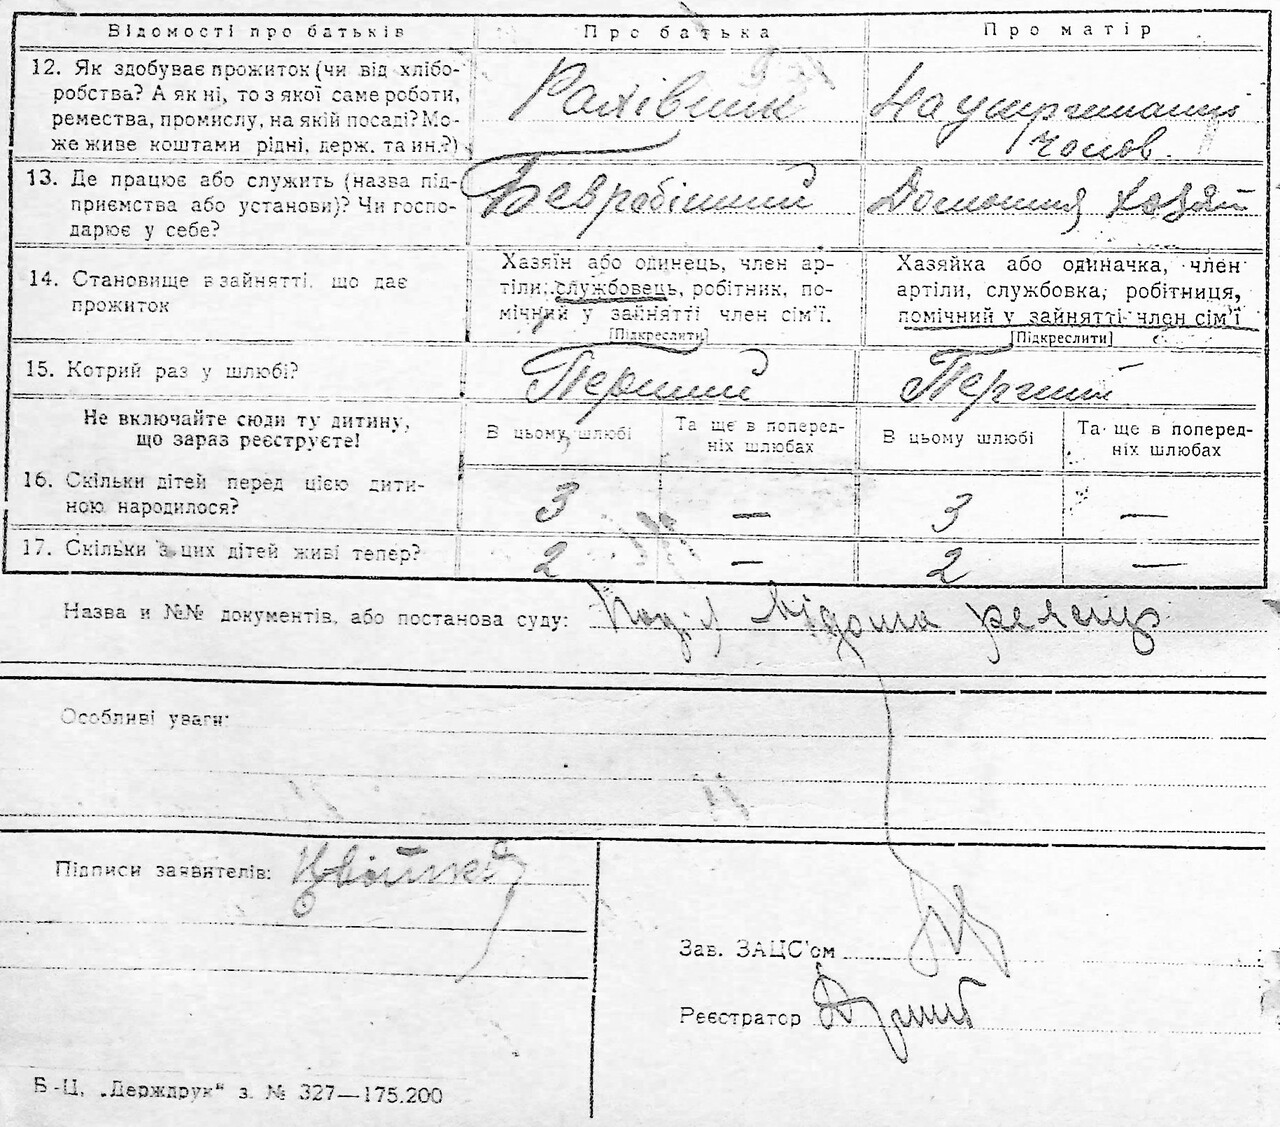 Відомості про батьків
Про батька
Про матір
12. Як здобуває прожиток (чи від хлібо-
робства? А як ні, то з якої саме роботи,
ремества, промислу, на якій посаді? Мо-
же живе коштами рідні, держ. та ин.?)
Рахівник
На утриманні
чолов.
13. Де працює або служить (назва під-
приємства або установи)? Чи госпо-
дарює у себе?
Безробітний
Домошня хазяй
14. Становище в зайнятті, що дає
прожиток
Хазяїн або одинець, член ар-
тіли, службовець, робітник, по-
мічний у зайнятті член сім'ї.
[Підкреслити]
Хазяйка або одиначка, член
артіли, службовка, робітниця,
помічний у зайнятті член сім'ї
[Підкреслити]
15. Котрий раз у шлюбі?
Перший
Перший
Не включайте сюди ту дитину,
що зараз реєструєте!
В цьому шлюбі
Та ще в поперед-
ніх шлюбах
В цьому шлюбі
Та ще в поперед-
ніх шлюбах
16. Скільки дітей перед цією дити-
ною народилося?
3 — 3 —
17. Скільки з цих дітей живі тепер?
2 — 2 —
Назва и №№ документів, або постанова суду:
Особливі уваги:
Підписи заявителів:
Зав. ЗАЦС'ом
Реєстратор
Б-Ц, „Держдрук“ з. № 327—175.200